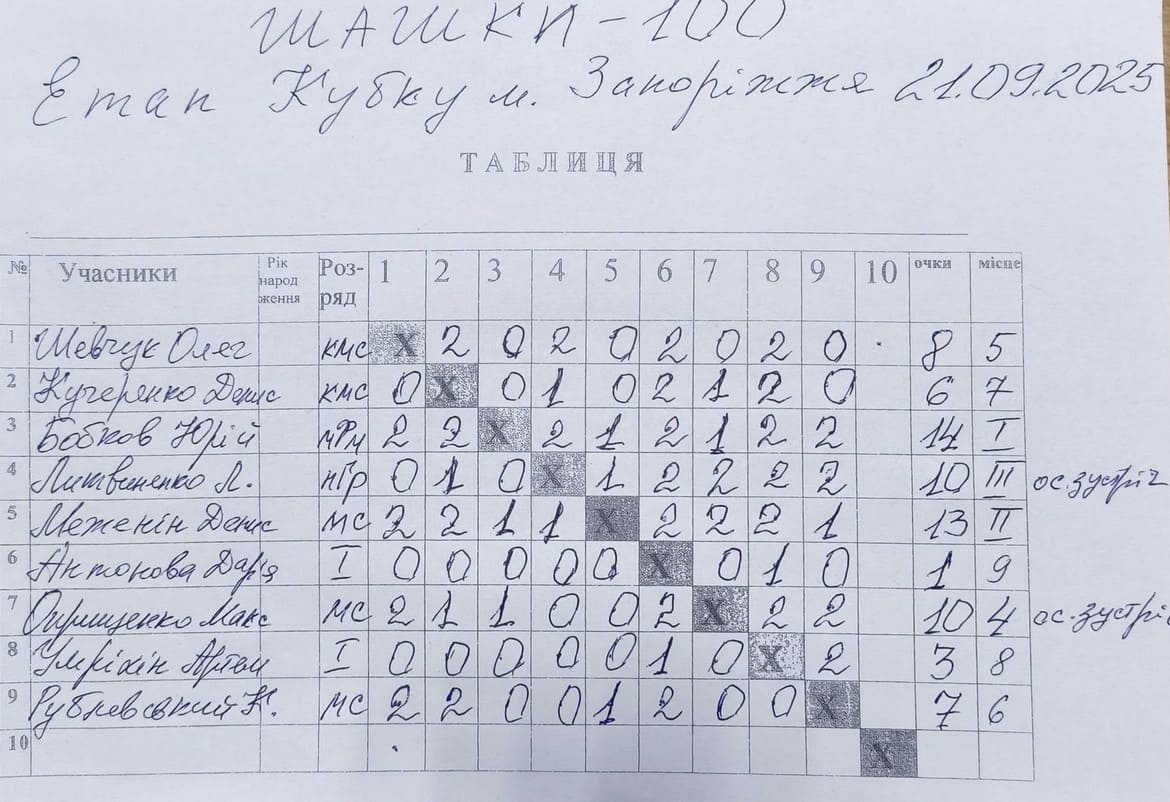 ШАШКИ-100
Етап Кубку м. Запоріжжя 21.09.2025
ТАБЛИЦЯ
№ Учасники Рік народження Роз-ряд 1 2 3 4 5 6 7 8 9 10 очки місце
1 Шевчук Олег кмс X 2 0 2 0 2 0 2 0 8 5
2 Кучеренко Денис кмс 0 X 0 1 0 2 1 2 0 6 7
3 Бобков Юрій мФм 2 2 X 2 1 2 1 2 2 14 I
4 Литвиненко Л. нГр 0 1 0 X 1 2 2 2 2 10 III ос.зустріч
5 Меженін Денис мс 2 2 1 1 X 2 2 2 1 13 II
6 Антонова Дар'я I 0 0 0 0 0 X 0 1 0 1 9
7 Макс мс 2 1 1 0 0 2 X 2 2 10 4 ос.зустріч
8 Умріхін Артем I 0 0 0 0 0 1 0 X 2 3 8
9 Рублевський К. мс 2 2 0 0 1 2 0 0 X 7 6
10 X